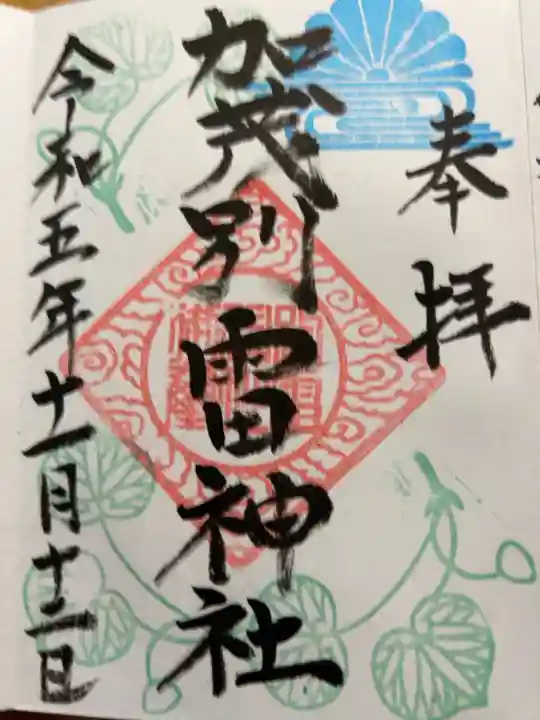 奉拝
加茂別雷神社
令和五年十一月十二日